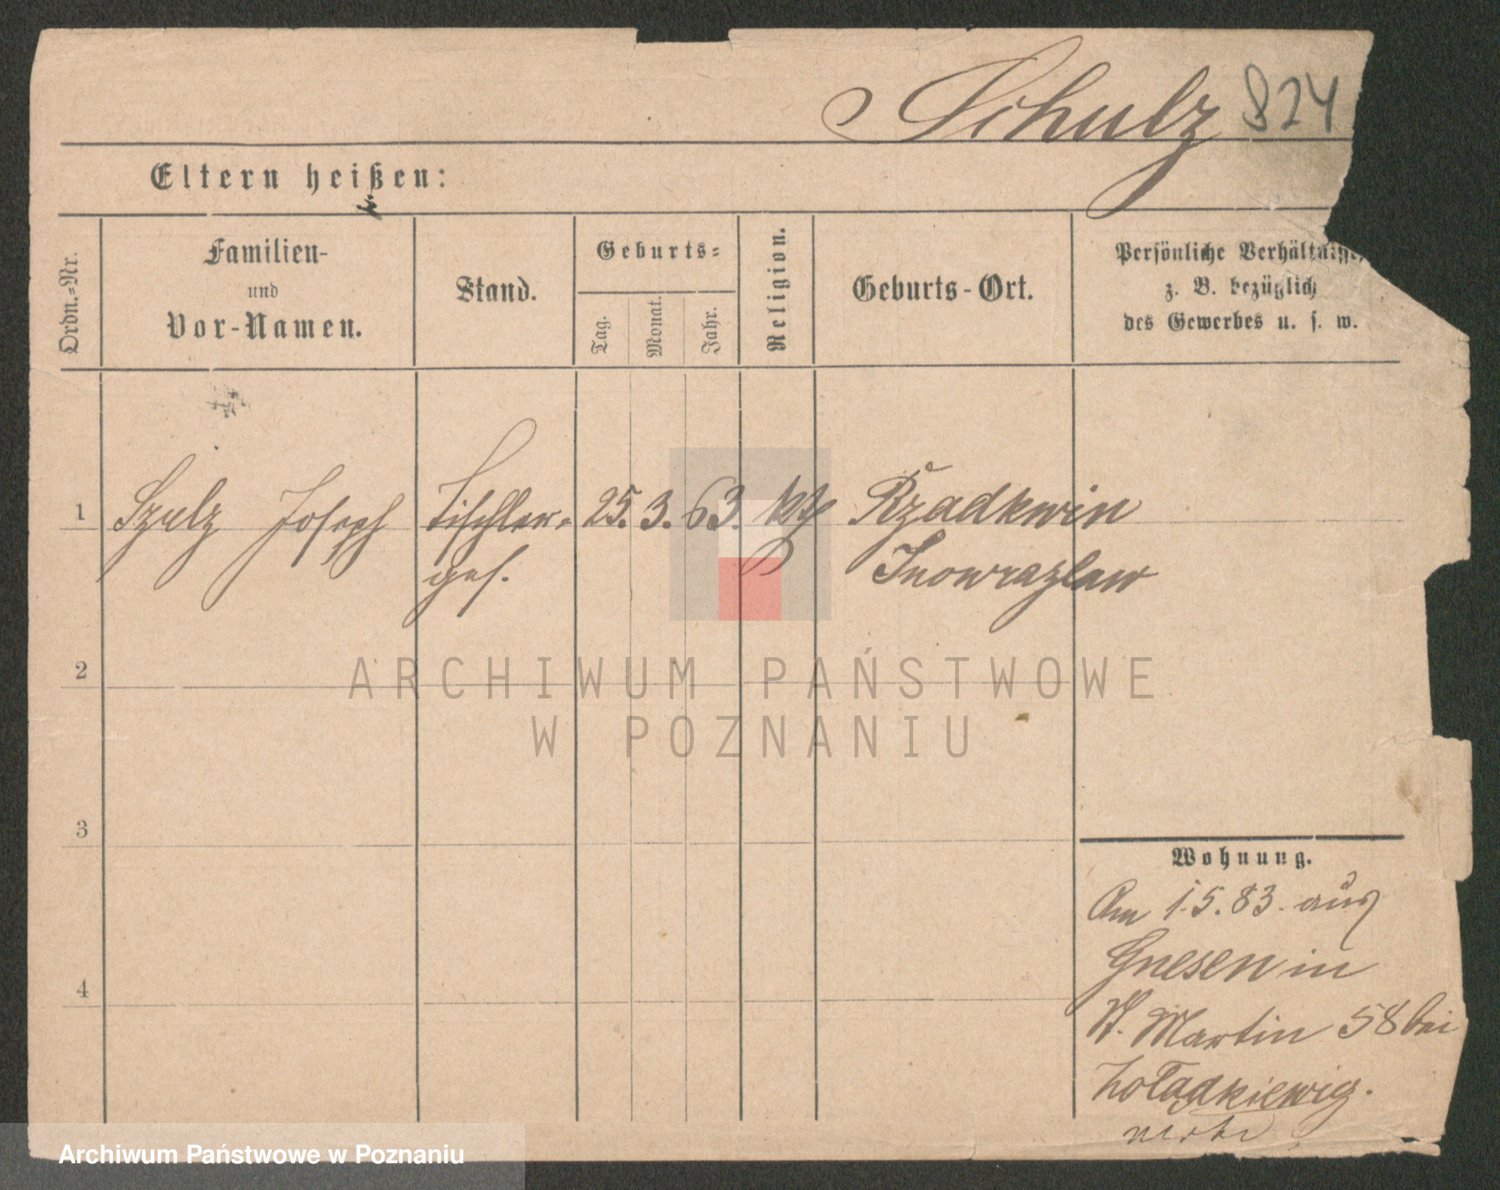 Schulz 824
Eltern heißen:
Ordn.-Nr.
Familien-
und
Vor-Namen.
Stand.
Geburts-
Tag.
Monat.
Jahr.
Religion.
Geburts-Ort.
Persönliche Verhältnisse,
z. B. bezüglich
des Gewerbes u. s. w.
1 Szulz Joseph Tischler- 25. 3. 63. kth Rzadkwin
ges. Inowrazlaw
2
3
4
Wohnung.
Am 1.5.83. aus
Gnesen in
St. Martin 58 bei
Zołądkiewicz.
ARCHIWUM PAŃSTWOWE
W POZNANIU
Archiwum Państwowe w Poznaniu